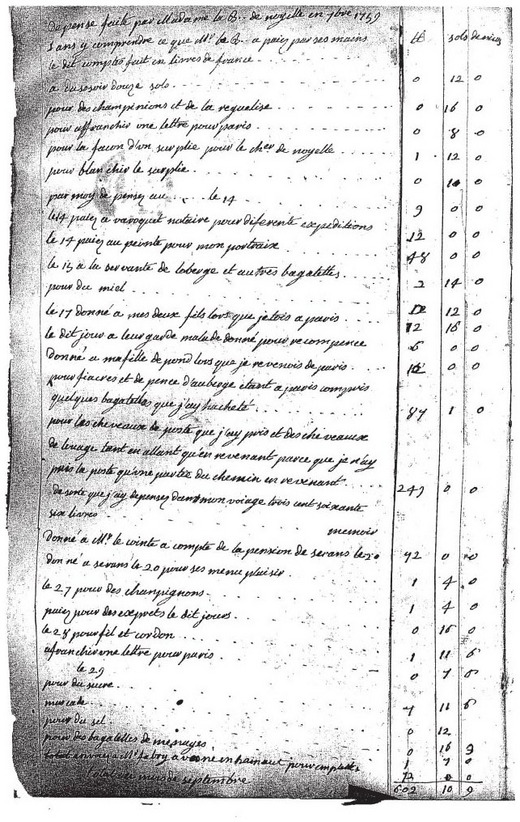 Depense faite par Madame la B.. de noyelle en 7bre 1759
sans y comprendre ce que Mr de B.. a paiez par ses mains
le dit compte fait en livres de france ... lb sols deniers
a du sesoir douze sols ... 0 12 0
pour des champinions et de la requalise ... 0 16 0
pour affranchir une lettre pour paris ... 0 8 0
pour la façon d'un surplie pour le cher de noyelle ... 1 12 0
pour blanchir le surplie ... 0 10 0
par moy de pensez au ... le 14 ... 9 0 0
le 14 paiez a varoquet notaire pour diferente expeditions ... 12 0 0
le 14 paiez au peintre pour mon portraire ... 48 0 0
le 15 a la servante de loberge et autres bagatelles ... 2 14 0
pour du miel ... 12 0
le 17 donné a mes deux fils lors que jetois a paris ... 12 16 0
le dit jour a leur garde malade donné pour recompence ... 6 0 0
Donné a ma fille de pond lors que je revenois de paris ... 0 0
pour fiacres et de pence d'auberge etant a paris compris
quelques bagatelles que j'ay hacheté ... 87 1 0
pour les cheveaux de poste que j'ay pris et des cheveaux
de louage tant en allant qu'en revenant parce que je n'ay
pris la poste qu'une partie du chemin en revenant ... 249 0 0
de sorte que j'ay depensez dans mon voiage trois cent soixante
six livres
memoir
Donné a Mr le comte a compte de la pension de serans le 20 ... 92 0 0
donné a serans le 20 pour ses menu plaisir ... 1 4 0
le 27 pour des champignons ... 1 4 0
paiez pour des exprets le dit jours ... 0 16 0
le 28 pour fil et cordon ... 1 11 6
afranchir une lettre pour paris ... 0 7 6
le 29
pour du sucre ... 7 11 6
muscade ... 0 12
pour du sel ... 0 16 9
pour des bagatelles de menages ... 1 7 0
a Mr fabry a en hainaut pour ... 72 0 0
total du mois de septembre ... 602 10 9